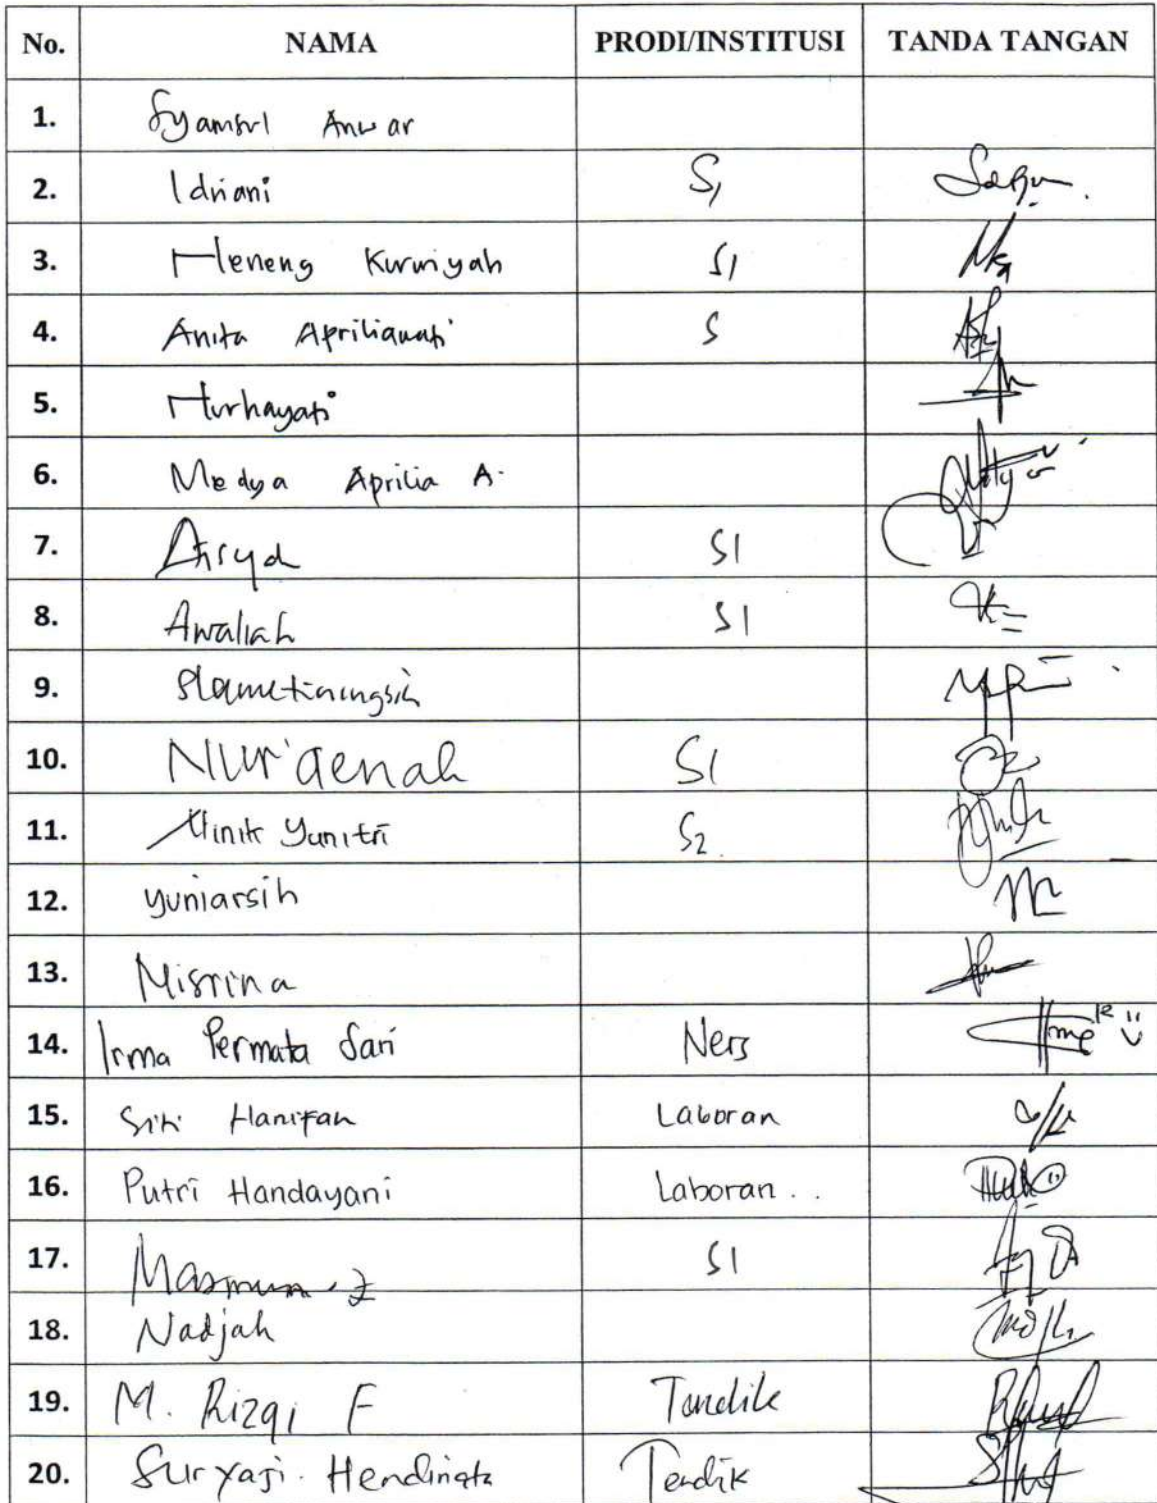 No. NAMA PRODI/INSTITUSI TANDA TANGAN
1. Syamsul Anwar
2. Idriani S1
3. Neneng Kurwiyah S1
4. Anita Apriliawati S
5. Nurhayati
6. Medya Aprilia A.
7. Aisyah S1
8. Awaliah S1
9. Slametiningsih
10. Nur'aenah S1
11. Ninik Yunitri S2
12. yuniarsih
13. Misrina
14. Irma Permata Sari Ners
15. Siti Hanifah Laboran
16. Putri Handayani Laboran ..
17. Masmun Z S1
18. Nadjah
19. M. Rizqi F Tendik
20. Suryaji Hendinata Tendik